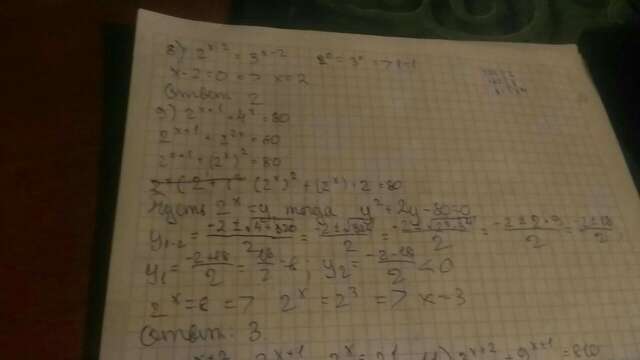 8) 2^{x-2} = 3^{x-2} 2^0 = 3^0 => 1=1
x-2=0 => x=2
Ответ: 2
9) 2^{x+1} + 4^x = 80
2^{x+1} + 2^{2x} = 80
2^{x+1} + (2^x)^2 = 80
(2^x)^2 + (2^x)·2 = 80
Пусть 2^x = y, тогда y^2 + 2y - 80 = 0
y_{1-2} = \frac{-2±\sqrt{4+320}}{2} = \frac{-2±\sqrt{324}}{2} = = \frac{-2±2·9}{2} = \frac{-2±18}{2}
y_1 = \frac{-2+18}{2} = \frac{16}{2} = 8; y_2 = \frac{-2-18}{2} < 0
2^x = 8 => 2^x = 2^3 => x = 3
Ответ: 3.